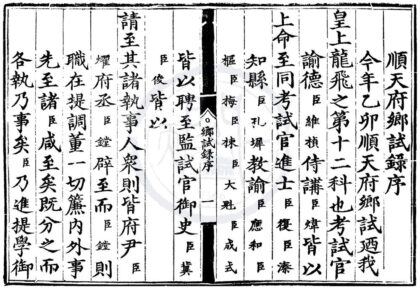 順天府鄉試錄序
今年乙卯順天府鄉試廼我
皇上龍飛之第十二科也考試官
諭德臣維楨侍講臣煒皆以
上命至同考試官進士臣復臣漆
知縣臣孔墀教諭臣應和臣
樞臣梅臣棟臣大魁臣成式
鄉試錄序
一
皆以聘至監試官御史臣冀
臣俊皆以
請至其諸執事人衆則皆府尹臣
燿府丞臣鏜辟至而臣鏜則
職在提調董一切簾内外事
先至諸臣咸至矣既分之而
各執乃事矣臣乃進提學御